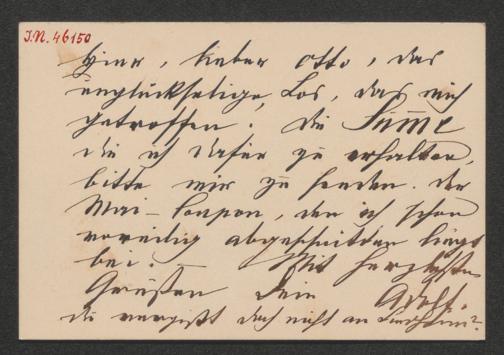 J.N. 46150
Hier, lieber Otto, das
unglückselige Los, das mich
getroffen. Die Summe
die ich dafür zu erhalten,
bitte mir zu senden. Der
Mai-Coupon, den ich schon
voreilig abgeschnitten liegt
bei. – Mit herzlichsten
Grüßen Dein Adolf.
du vergißt doch nicht an